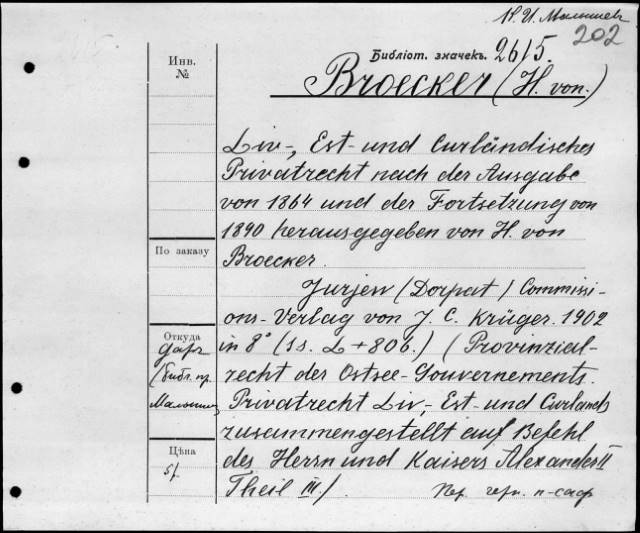 И. Малышев
202
Инв.
№
Библіот. значекъ. 2615.
Broecker (H. von.)
Liv-, Est- und Curländisches
Privatrecht nach der Ausgabe
von 1864 und der Fortsetzung von
1890 herausgegeben von H. von
Broecker.
По заказу
Jurjew (Dorpat) Commissi-
ons-Verlag von J. C. Krüger. 1902
Откуда
даръ
(библ. пр.
in 8° (1 s. L + 806.) (Provinzial-
recht der Ostsee-Gouvernements.
Privatrecht Liv-, Est- und Curlands
zusammengestellt auf Befehl
Цѣна
des Herrn und Kaisers Alexander II
Theil III.)